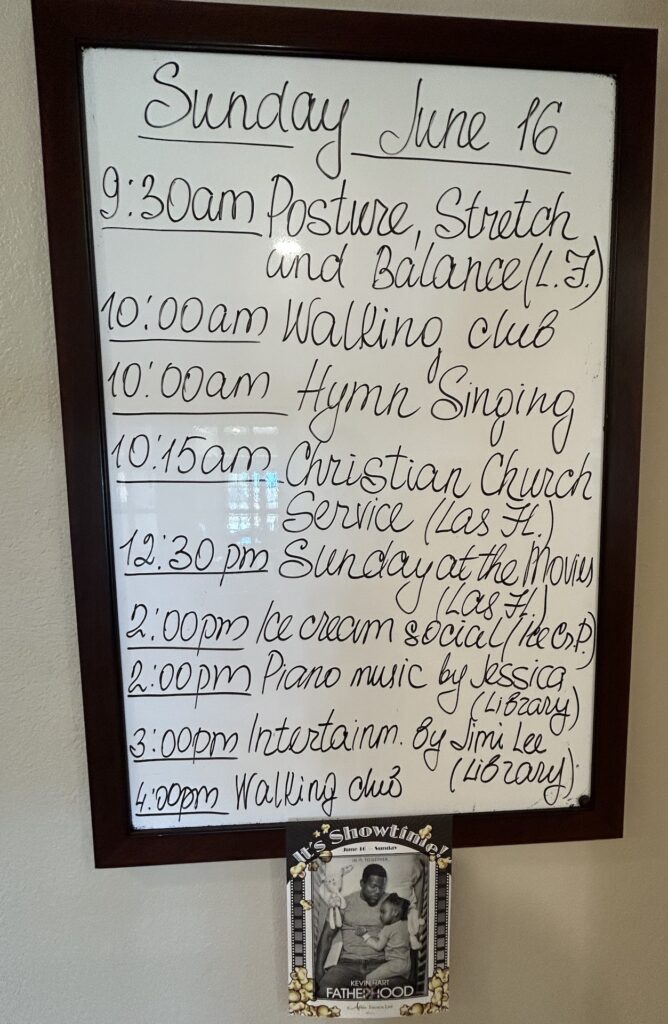 Sunday June 16
9:30am Posture, Stretch
and Balance (L.F.)
10:00am Walking club
10:00am Hymn Singing
10:15am Christian Church
Service (Las Fl.)
12:30pm Sunday at the Movies
(Las Fl.)
2:00pm Ice cream social
2:00pm Piano music by Jessica
(Library)
3:00pm Intertainm. By Jimi Lee
(Library)
4:00pm Walking club
It's Showtime!
June 16 - Sunday
KEVIN HART
FATHERHOOD